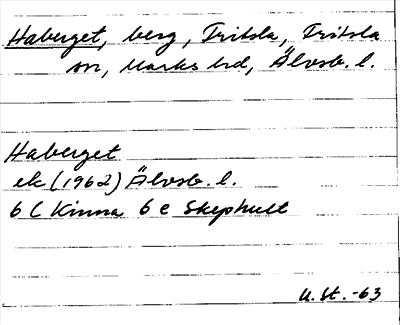 Haberget, berg, Fritsla, Fritsla
sn, Marks hd, Älvsb. l.
Haberget
ek (1962) Älvsb. l.
6 C Kinna 6 e Skephult
U. St. -63